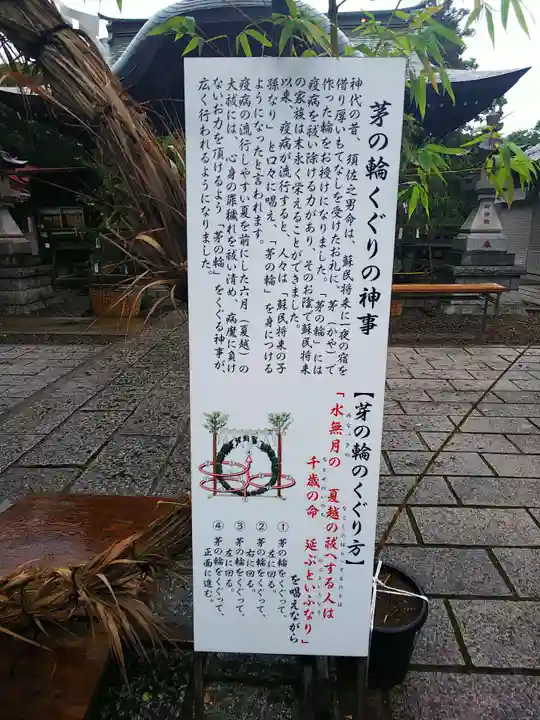 茅の輪くぐりの神事
神代の昔、須佐之男命は、蘇民将来に一夜の宿を
借り厚いもてなしを受けたお礼に、茅(かや)で
作った輪をお授けになりました。「茅の輪」には
疫病を祓い除ける力があり、そのお陰で蘇民将来
の家族は末永く栄えることができました。
以来、疫病が流行すると、人々は「蘇民将来の子
孫なり」と口々に唱え、「茅の輪」を身につける
ようになったと言われます。
疫病の流行しやすい夏を前にした六月(夏越)の
大祓には、心身の罪穢れを祓い清め、病魔に負け
ないお力を頂けるよう「茅の輪」をくぐる神事が、
広く行われるようになりました。
【芽の輪のくぐり方】
「水無月の 夏越の祓へする人は
みなづきの なごしのはらへするひとは
千歳の命 延ぶといふなり」
ちとせのいのち のぶといふなり
を唱えながら
①茅の輪をくぐって、
左に回る。
②茅の輪をくぐって、
右に回る。
③茅の輪をくぐって、
左に回る。
④茅の輪をくぐって、
正面に進む。